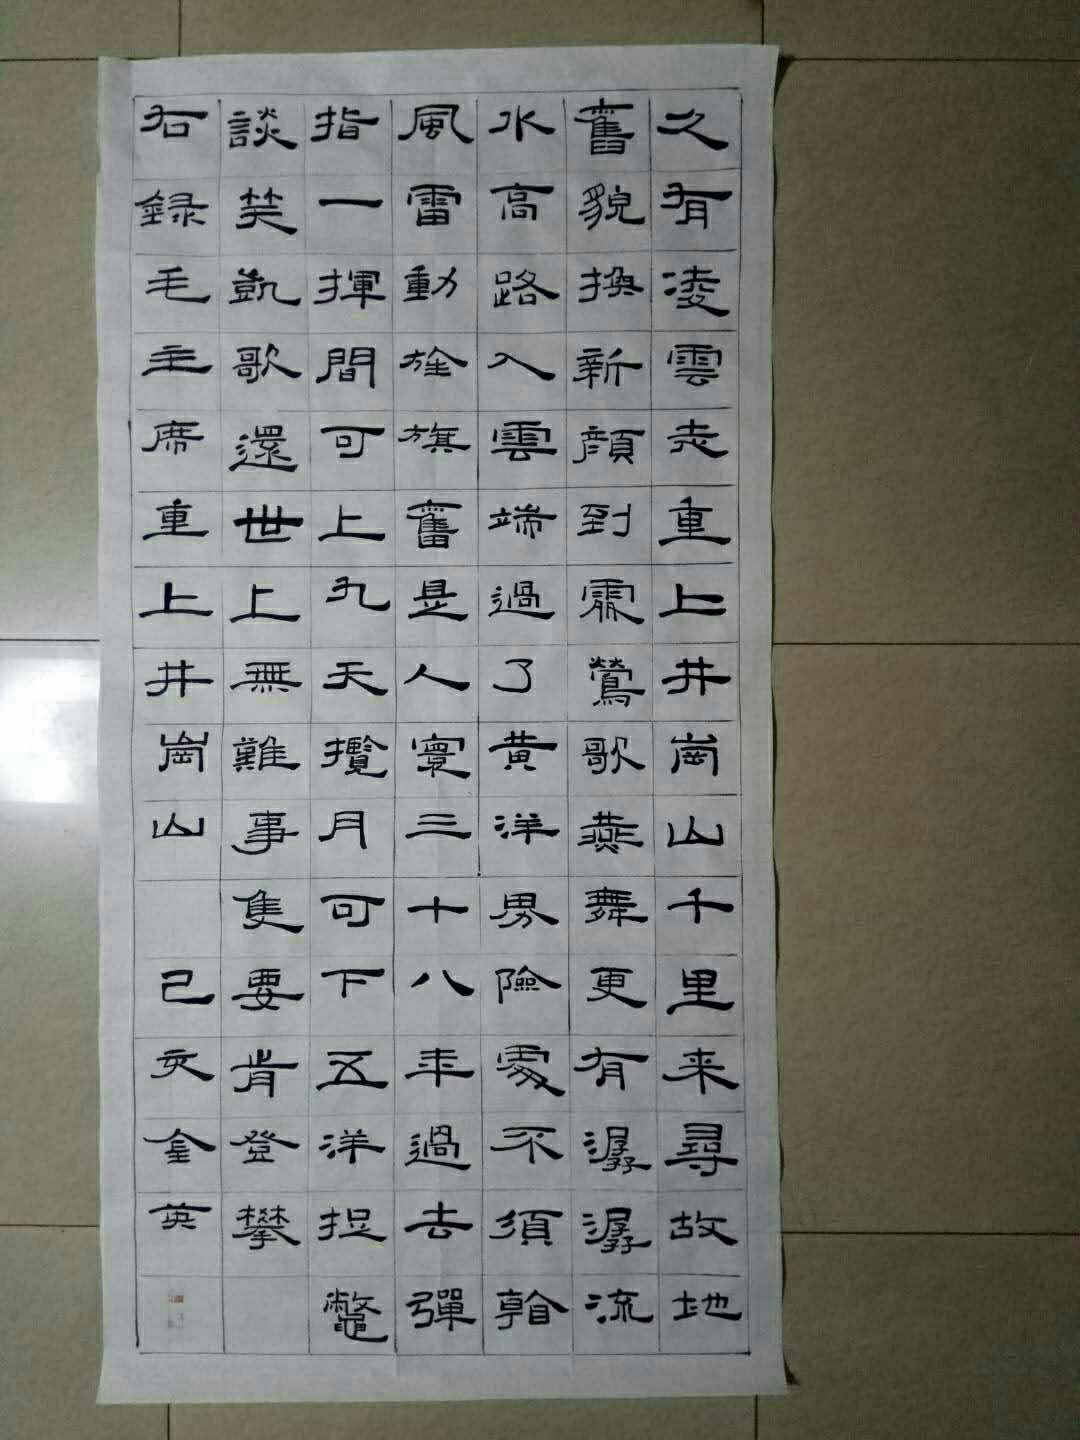 久有凌雲志重上井崗山千里来尋故地
舊貌換新顔到處鶯歌燕舞更有潺潺流
水高路入雲端過了黃洋界險處不須看
風雷動旌旗奮是人寰三十八年過去彈
指一揮間可上九天攬月可下五洋捉鼈
談笑凱歌還世上無難事隻要肯登攀
右録毛主席重上井崗山 己亥金英